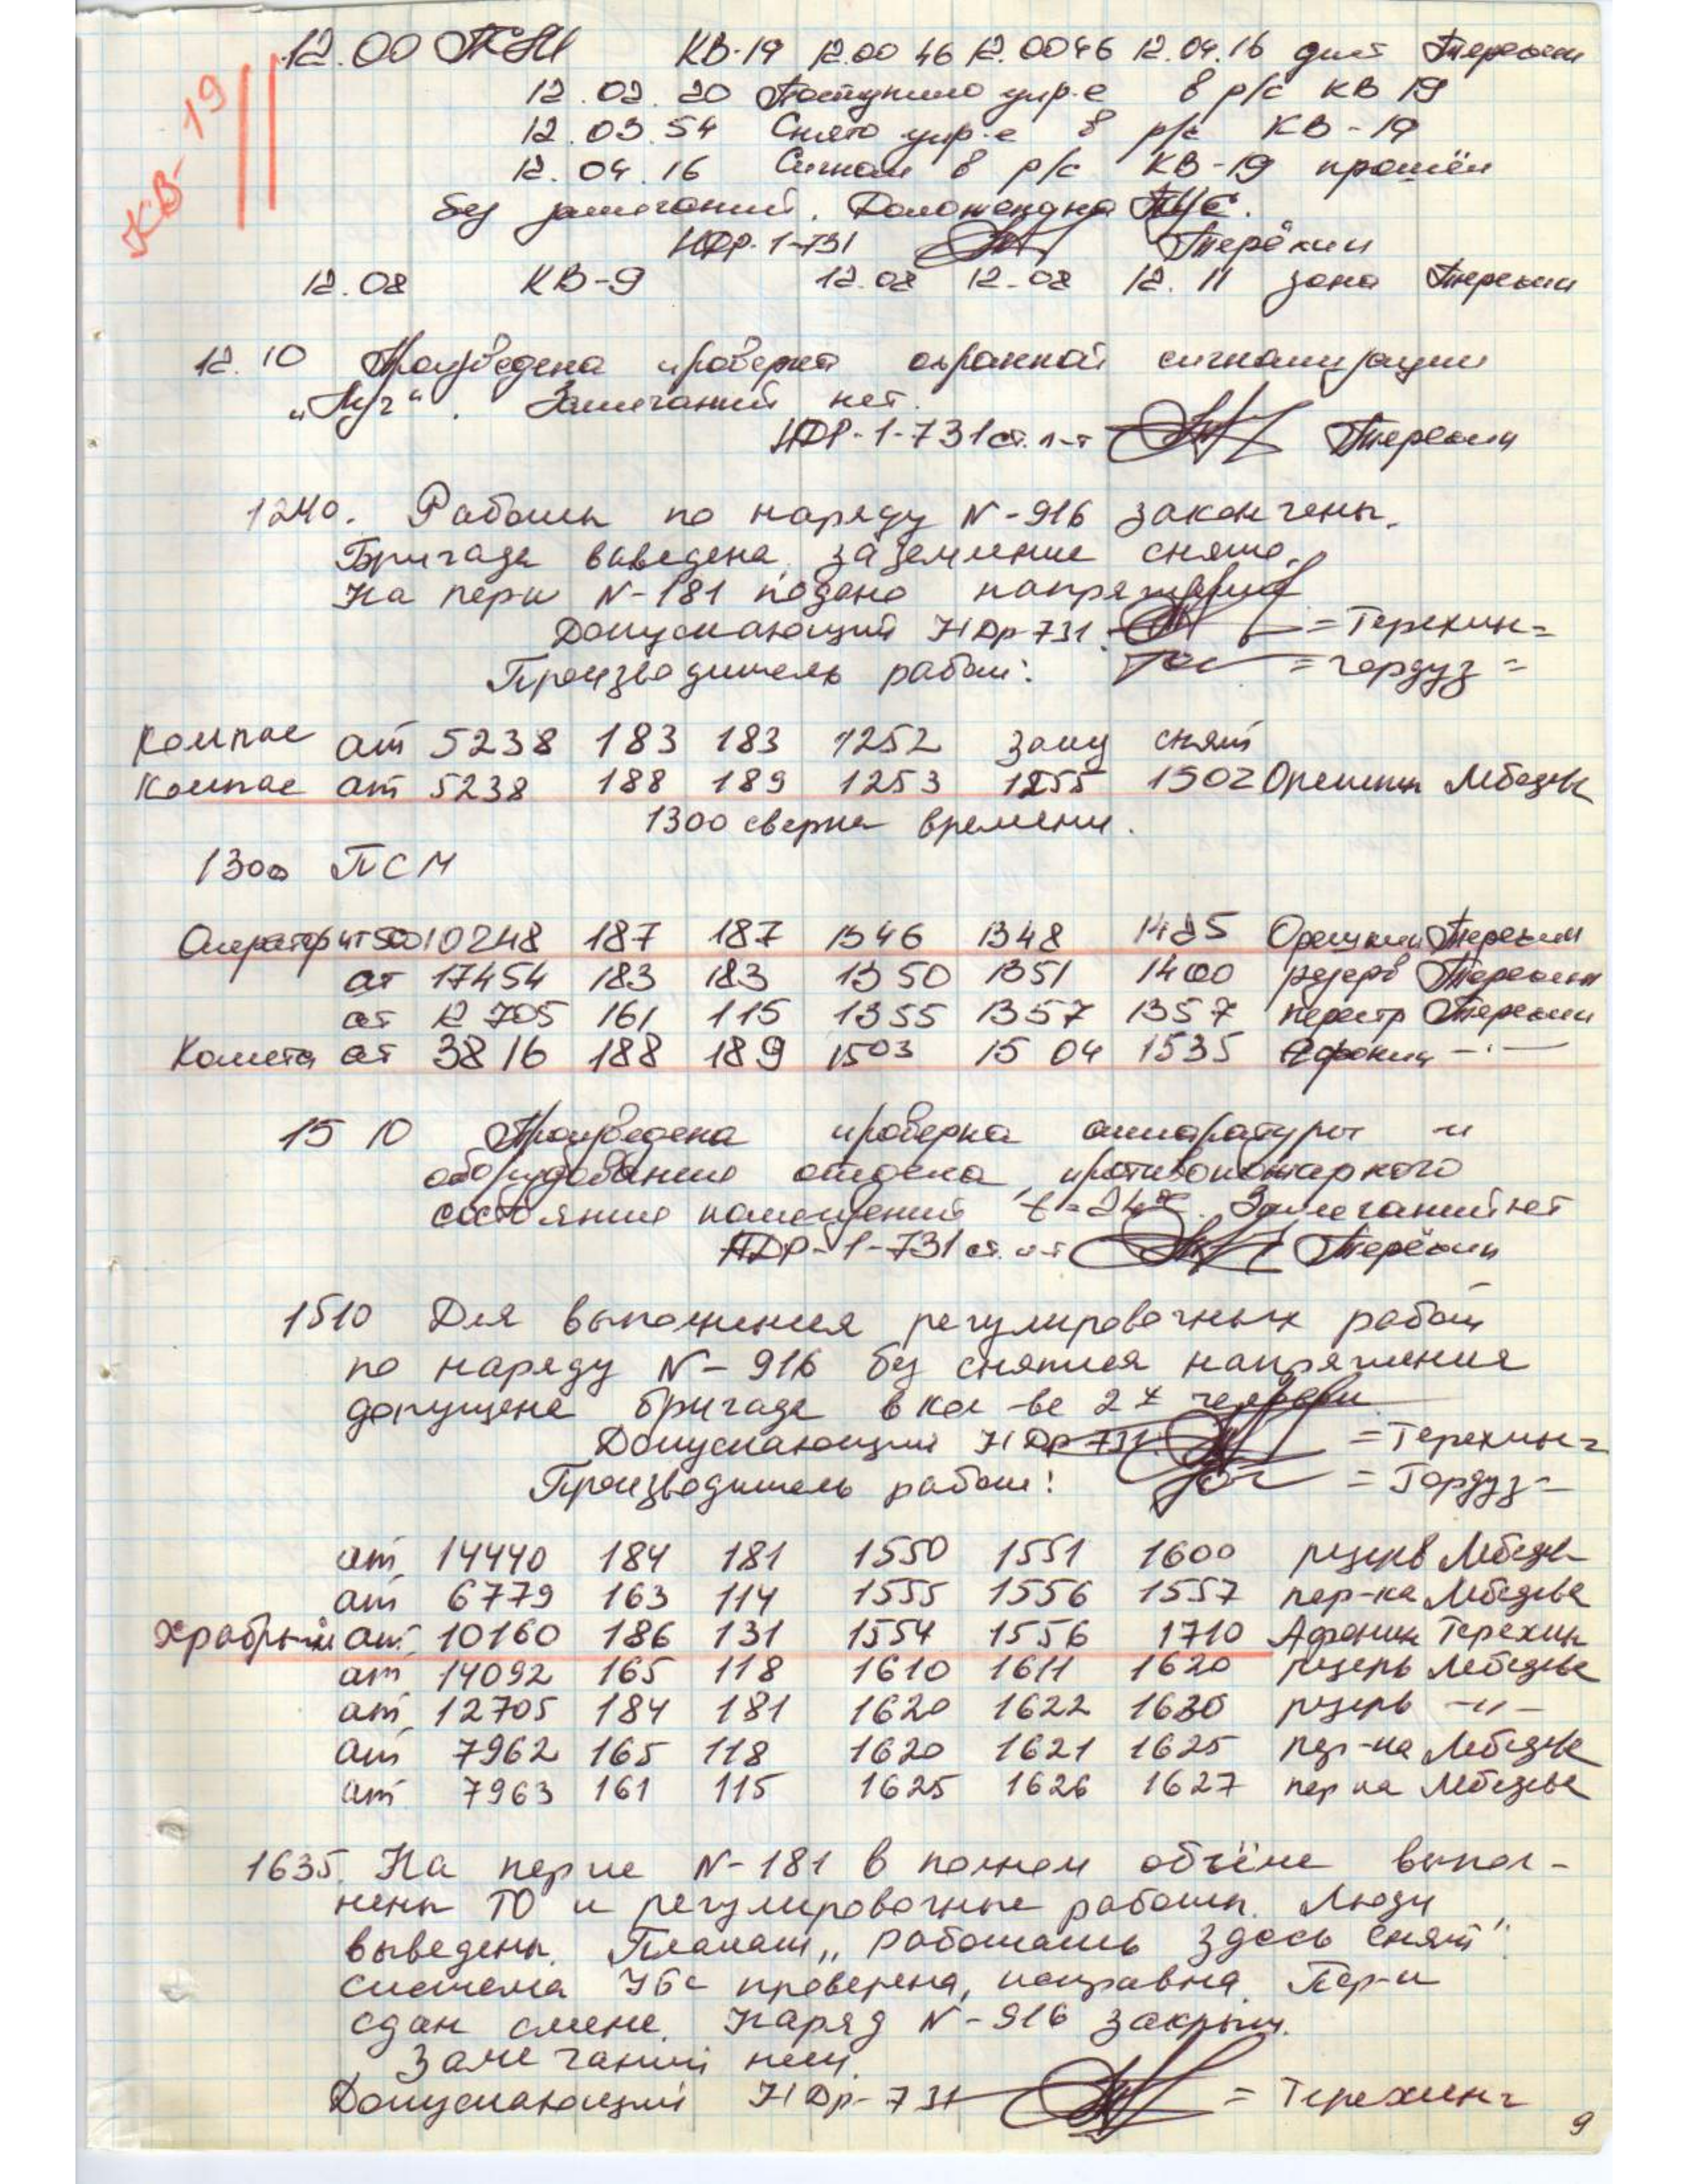 12.00 ПСМ КВ-19 12.00 46 12.0046 12.04.16 дист Терехин
КВ-19
12.02.20 Поступило упр-е в р/с КВ 19
12.03.54 Снято упр-е в р/с КВ-19
12.04.16 Сигнал в р/с КВ-19 прошёл
без замечаний. Доложено на ПУС.
НДР-1-731 Терёхин
12.08 КВ-9 12.08 12-08 12.11 зона Терехин
12.10 Произведена проверка охранной сигнализации
„Луч“. Замечаний нет.
НДР-1-731 ст. л-т Терехин
1240. Работы по наряду N-916 закончены.
Бригада выведена, заземление снято.
На перд N-181 подано напряжение
Допускающий НДр 731. =Терехин=
Производитель работ: =Гордуз=
Компас ат 5238 183 183 1252 зону снят
Компас ат 5238 188 189 1253 1255 1502 Орешкин Лебедев
1300 сверка времени.
1300 ПСМ
Оператор 10248 187 187 1346 1348 1425 Орешкин Терехин
ат 17454 183 183 1350 1351 1400 резерв Терехин
ат 12705 161 115 1355 1357 1357 перестр Терехин
Комета ат 3816 188 189 1503 15 04 1535 Афонин -"-
15 10 Произведена проверка аппаратуры и
оборудования отдела, противопожарного
состояния помещений t=24°С. Замечаний нет
НДР-1-731 ст. л-т Терёхин
1510 Для выполнения регулировочных работ
по наряду N-916 без снятия напряжения
допущена бригада в кол-ве 2х человек
Допускающий НДр 731. =Терехин=
Производитель работ: =Гордуз=
ат 14440 184 181 1550 1551 1600 резерв Лебедев
ат 6779 163 114 1555 1556 1557 пер-ка Лебедев
Храбрый ат 10160 186 131 1554 1556 1710 Афонин Терехин
ат 14092 165 118 1610 1611 1620 резерв Лебедев
ат 12705 184 181 1620 1622 1630 резерв -"-
ат 7962 165 118 1620 1621 1625 пер-ка Лебедев
ат 7963 161 115 1625 1626 1627 пер ка Лебедев
1635. На перде N-181 в полном объёме выпол-
нены ТО и регулировочные работы. Люди
выведены. Плакат „работать здесь снят“
система УБС проверена, исправна. Пер-к
сдан смене. Наряд N-916 закрыт.
Замечаний нет.
Допускающий НДр-731 = Терехин=
9